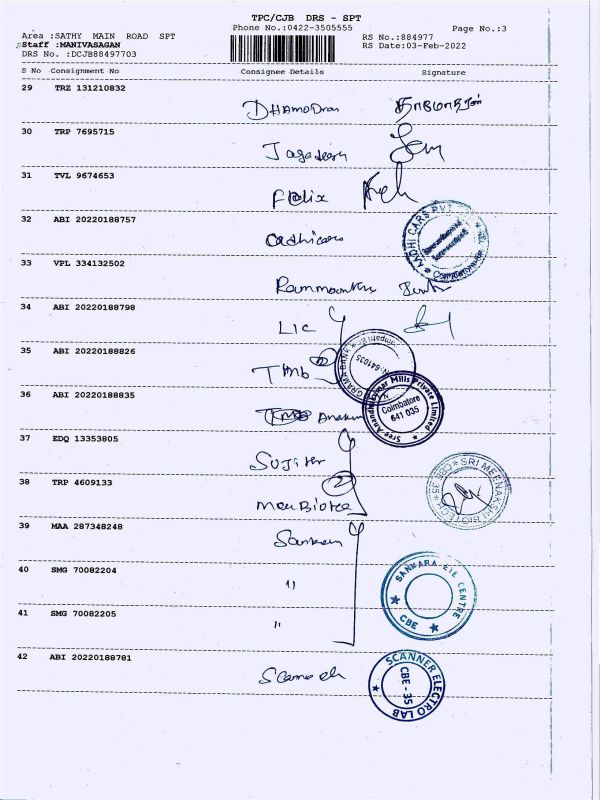 TPC/CJB DRS - SPT
Phone No.:0422-3505555
Page No.:3
Area :SATHY MAIN ROAD SPT
RS No.:884977
Staff :MANIVASAGAN
RS Date:03-Feb-2022
DRS No. :DCJB88497703
S No Consignment No Consignee Details Signature
29 TRZ 131210832
DHAMODran தாமோதரன்
30 TRP 7695715
31 TVL 9674653
Felix
32 ABI 20220188757
Cadhicars
AADHI CARS PVT
Coimbatore
33 VPL 334132502
34 ABI 20220188798
LIC
35 ABI 20220188826
TMb
GRAMA BANK
641035
36 ABI 20220188835
Sree Anandhakumar Mills Private Limited
Coimbatore
641 035
37 EDQ 13353805
38 TRP 4609133
SRI MEENAKSHI BIO TECH
39 MAA 287348248
40 SMG 70082204
"
SANKARA EYE CENTRE
CBE
41 SMG 70082205
"
42 ABI 20220188781
SCANNER ELECTRO LAB
CBE - 35